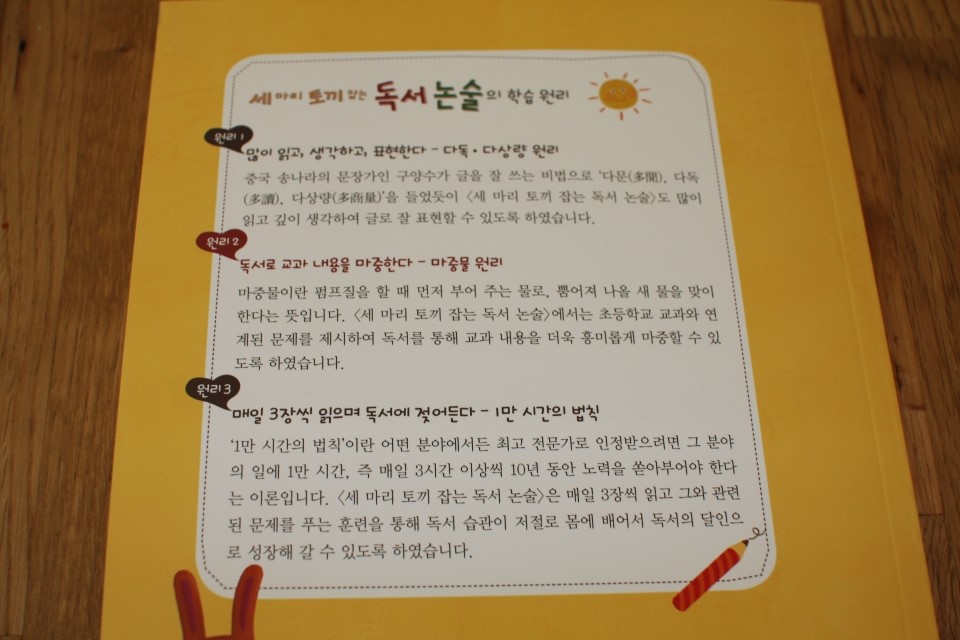 세 마리 토끼 잡는 독서 논술의 학습 원리
원리 1
많이 읽고, 생각하고, 표현한다 - 다독·다상량 원리
중국 송나라의 문장가인 구양수가 글을 잘 쓰는 비법으로 '다문(多聞), 다독
(多讀), 다상량(多商量)'을 들었듯이 〈세 마리 토끼 잡는 독서 논술〉도 많이
읽고 깊이 생각하여 글로 잘 표현할 수 있도록 하였습니다.
원리 2
독서로 교과 내용을 마중한다 - 마중물 원리
마중물이란 펌프질을 할 때 먼저 부어 주는 물로, 뿜어져 나올 새 물을 맞이
한다는 뜻입니다. 〈세 마리 토끼 잡는 독서 논술〉에서는 초등학교 교과와 연
계된 문제를 제시하여 독서를 통해 교과 내용을 더욱 흥미롭게 마중할 수 있
도록 하였습니다.
원리 3
매일 3장씩 읽으며 독서에 젖어든다 - 1만 시간의 법칙
'1만 시간의 법칙'이란 어떤 분야에서든 최고 전문가로 인정받으려면 그 분야
의 일에 1만 시간, 즉 매일 3시간 이상씩 10년 동안 노력을 쏟아부어야 한다
는 이론입니다. 〈세 마리 토끼 잡는 독서 논술〉은 매일 3장씩 읽고 그와 관련
된 문제를 푸는 훈련을 통해 독서 습관이 저절로 몸에 배어서 독서의 달인으
로 성장해 갈 수 있도록 하였습니다.